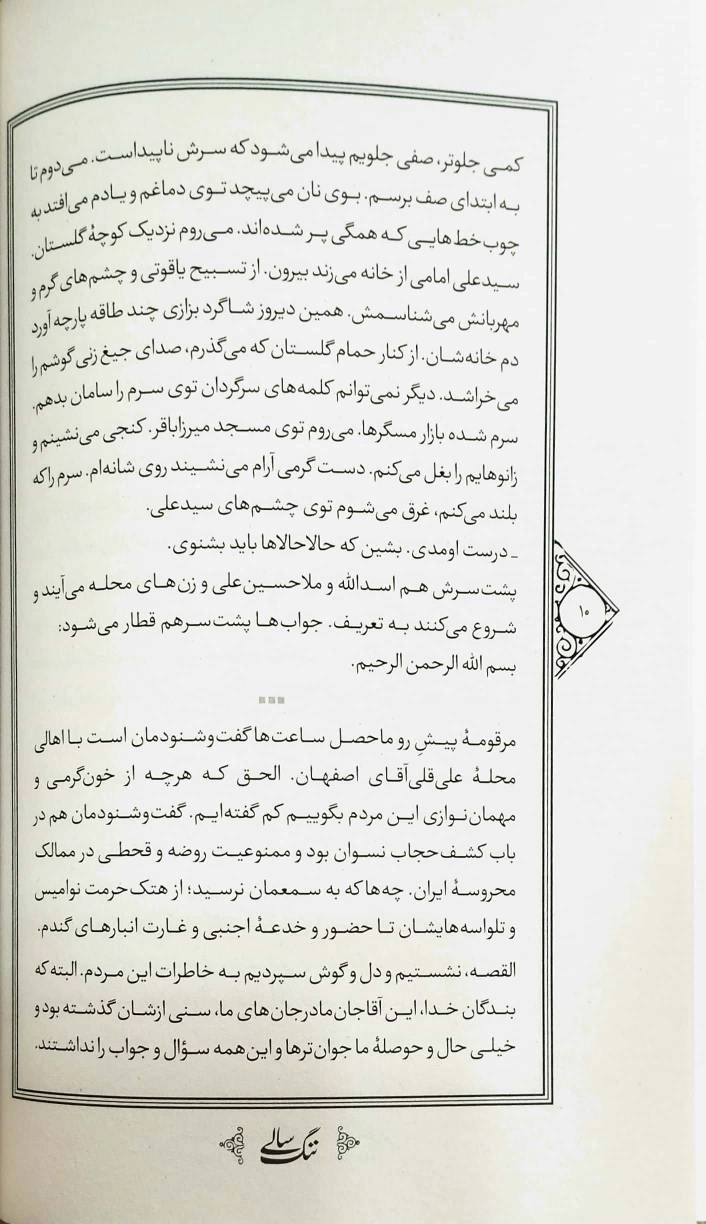 کمی جلوتر، صفی جلویم پیدا می‌شود که سرش ناپیداست. می‌دوم تا
به ابتدای صف برسم. بوی نان می‌پیچد توی دماغم و یادم می‌افتد به
چوب خط‌هایی که همگی پر شده‌اند. می‌روم نزدیک کوچهٔ گلستان.
سیدعلی امامی از خانه می‌زند بیرون. از تسبیح یاقوتی و چشم‌های گرم و
مهربانش می‌شناسمش. همین دیروز شاگرد بزازی چند طاقه پارچه آورد
دم خانه‌شان. از کنار حمام گلستان که می‌گذرم، صدای جیغ زنی گوشم را
می‌خراشد. دیگر نمی‌توانم کلمه‌های سرگردان توی سرم را سامان بدهم.
سرم شده بازار مسگرها. می‌روم توی مسجد میرزاباقر. کنجی می‌نشینم و
زانوهایم را بغل می‌کنم. دست گرمی آرام می‌نشیند روی شانه‌ام. سرم را که
بلند می‌کنم، غرق می‌شوم توی چشم‌های سیدعلی.
ـ درست اومدی. بشین که حالاحالاها باید بشنوی.
پشت سرش هم اسدالله و ملاحسین‌علی و زن‌های محله می‌آیند و
شروع می‌کنند به تعریف. جواب‌ها پشت سرهم قطار می‌شود:
بسم الله الرحمن الرحیم.
۱۰
مرقومهٔ پیشِ رو ماحصل ساعت‌ها گفت‌وشنودمان است با اهالی
محلهٔ علی‌قلی‌آقای اصفهان. الحق که هرچه از خون‌گرمی و
مهمان‌نوازی این مردم بگوییم کم گفته‌ایم. گفت‌وشنودمان هم در
باب کشف‌حجاب نسوان بود و ممنوعیت روضه و قحطی در ممالک
محروسهٔ ایران. چه‌ها که به سمعمان نرسید؛ از هتک حرمت نوامیس
و تلواسه‌هایشان تا حضور و خدعهٔ اجنبی و غارت انبارهای گندم.
القصه، نشستیم و دل و گوش سپردیم به خاطرات این مردم. البته که
بندگان خدا، این آقاجان‌مادرجان‌های ما، سنی ازشان گذشته بود و
خیلی حال و حوصلهٔ ما جوان‌ترها و این همه سؤال و جواب را نداشتند.
تنگ‌سالی